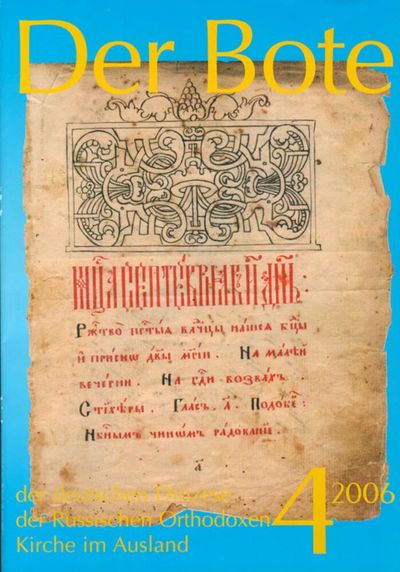 Der Bote
Мц҃а септеврїа въ и҃ дн҃ь
Рж҇тво пст҃ыѧ влч҃цы нашеѧ бц҃ы
и приснѡ дв҃ы мр҃їи . На малѣй
вечерни . На гд҇и возвахъ .
Стїхѣры . Гласъ . а҃ . Подобе :
Нбⷭ҇нымъ чинѡмъ радованїе .
а҃
der deutschen Diözese
der Russischen Orthodoxen
Kirche im Ausland
4 2006